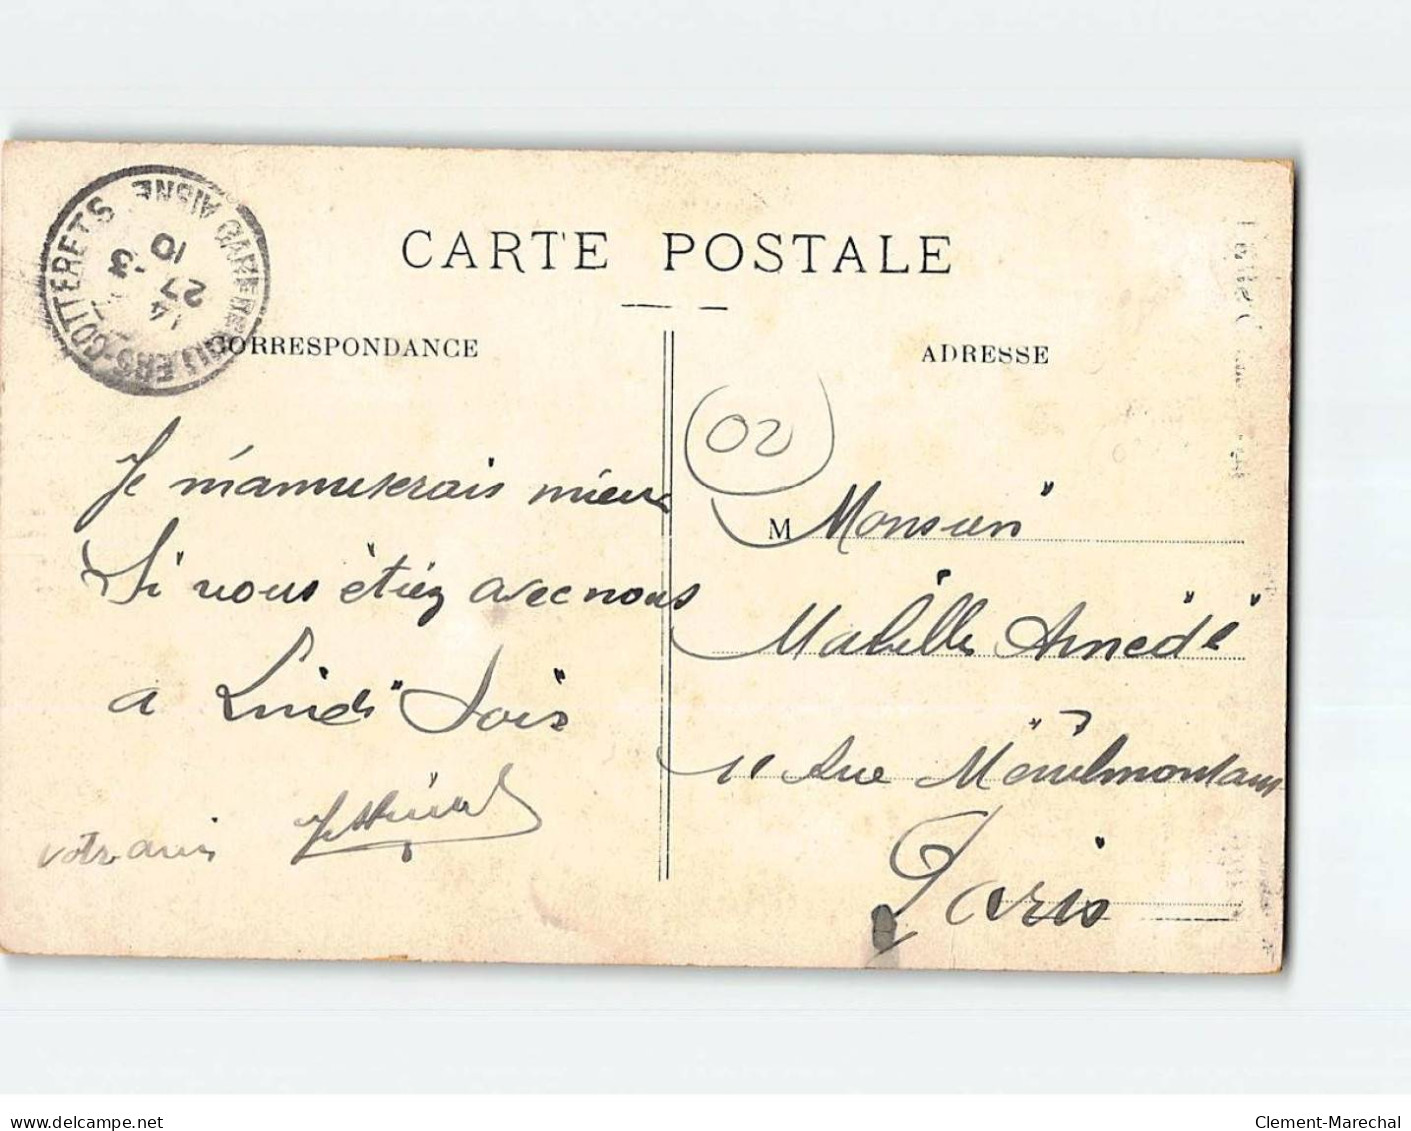 CARTE POSTALE
CORRESPONDANCE
ADRESSE
VILLERS-COTTERETS AISNE
14
27 -3
10
02
Je m'amuserais mieux
Si vous étiez avec nous
a Lundi Soir
votre ami
M Monsieur
Mabille Amédé
11 Rue Ménilmontant
Paris
delcampe.net
Clement-Marechal